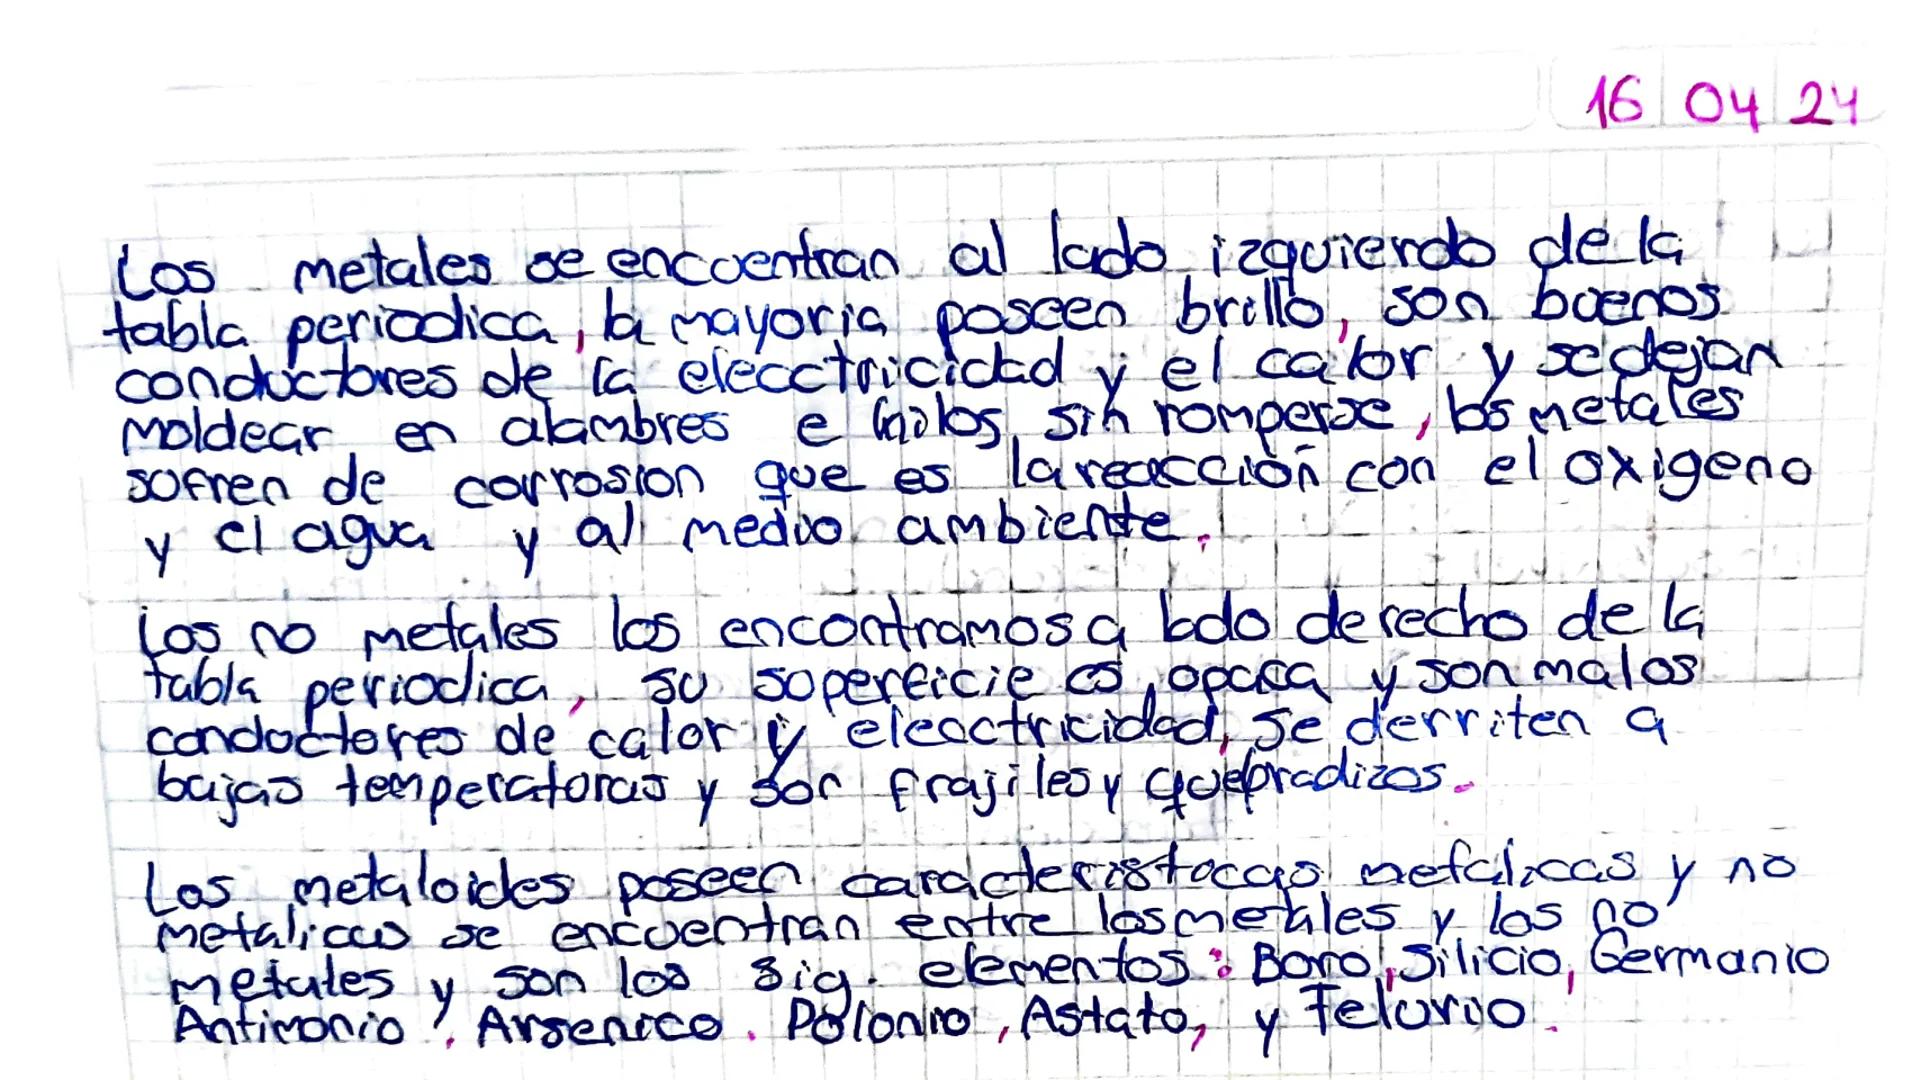 16 04 24
Los metales se encuentran al lado izquierdo de la
tabla periodica, la mayoria poseen brillo, son buenos
conductores de la elecctricidad y el calor y se dejan
moldear en alambres e hilos, sin romperse, los metales
sofren de corrosion que es la reacción con el oxigeno
y el agua y al medio ambiente.
Los no metales los encontramos a lado derecho de la
tabla periodica, su superficie es opaca y son malos
conductores de calor y elecctricidad, se derriten a
bajas temperaturas y son frajiles y quebradizos.
Los metaloides poseen caracteristocas metalicas y no
metalicas se encuentran entre los metales y los no
metales y son los sig. elementos: Boro, Silicio, Germanio
Antimonio, Arsenico. Polonio, Astato, y Telurio.